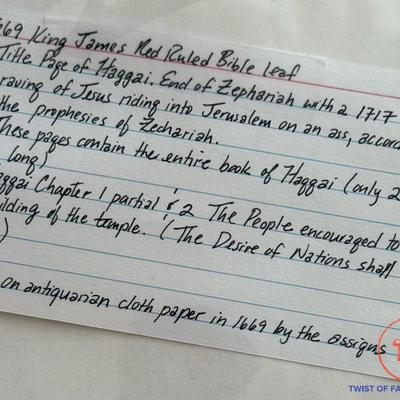 669 King James Red Ruled Bible leaf
Title Page of Haggai. End of Zephariah with a 1717
raving of Jesus riding into Jerusalem on an ass, accord
the prophesies of Zechariah.
These pages contain the entire book of Haggai (only 2
long)
ggai Chapter 1 partial & 2 The People encouraged to
ilding of the temple. (The Desire of Nations shall
)
on antiquarian cloth paper in 1669 by the assigns
TWIST OF FA